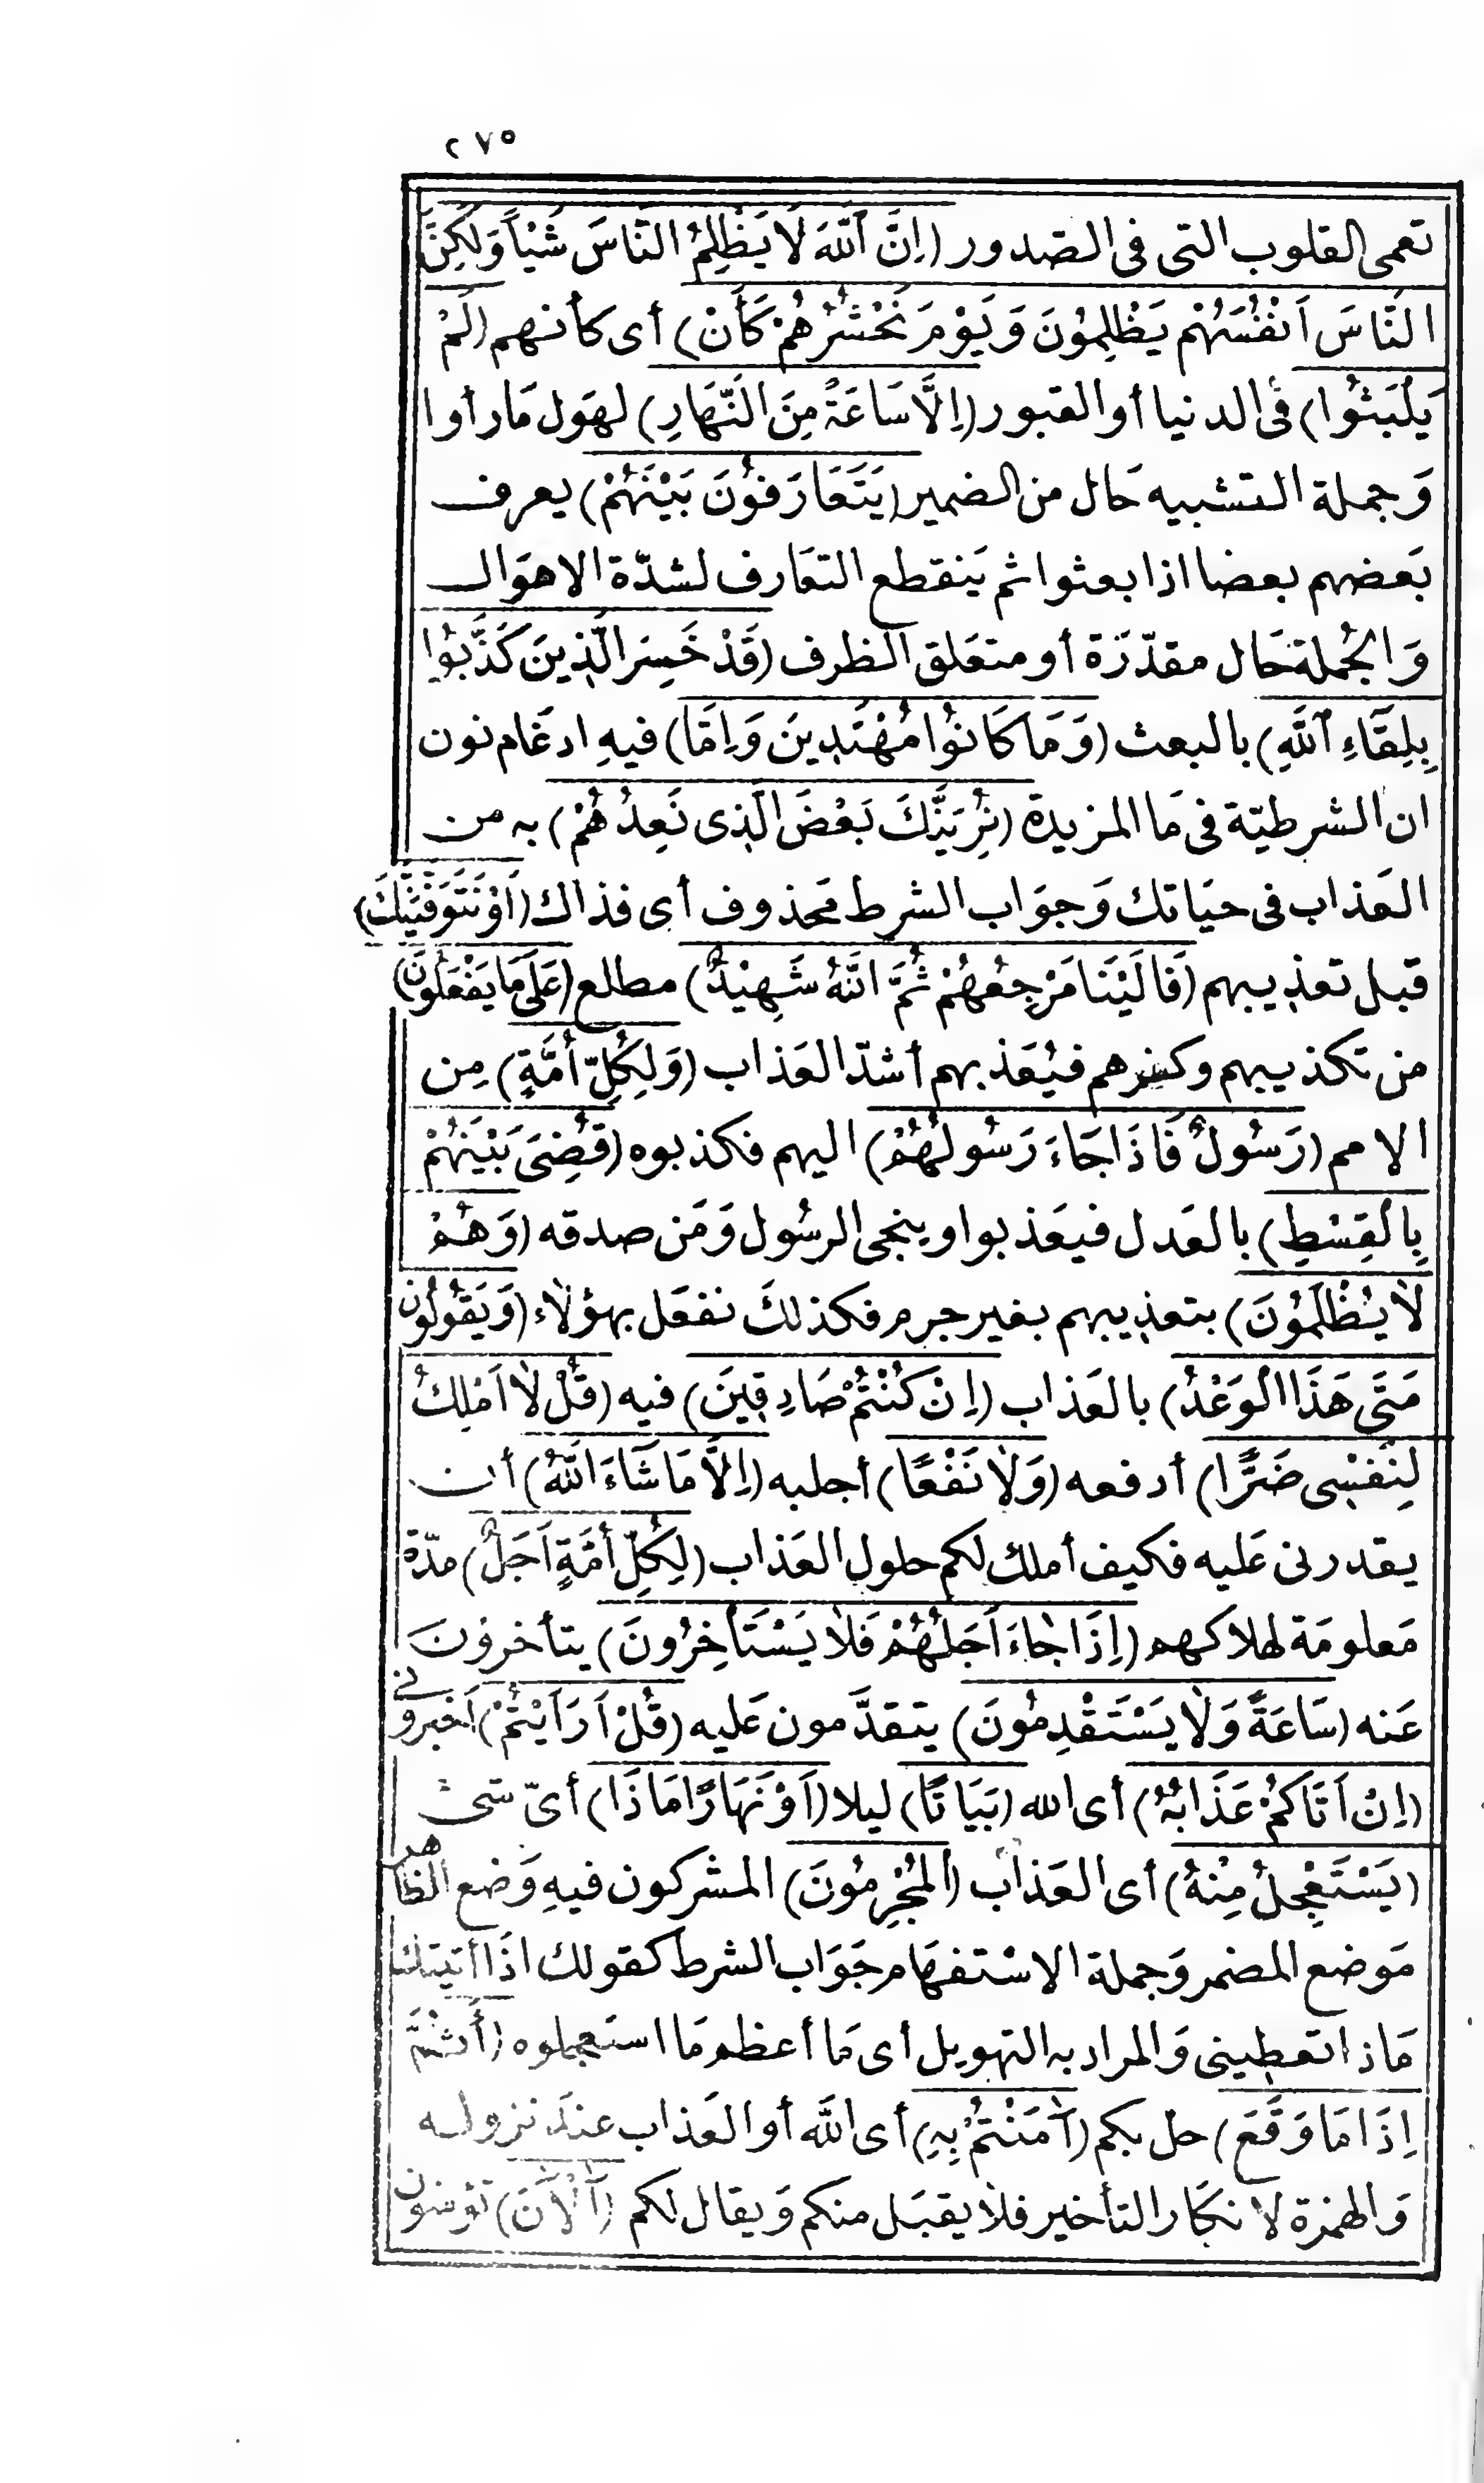 ٢٧٥
تعمى القلوب التى فى الصدور (اِنَّ ٱللَّهَ لَا يَظْلِمُ النَّاسَ شَيْأً وَلَكِنَّ
النَّاسَ اَنْفُسَهُمْ يَظْلِمُوْنَ وَيَوْمَ نَحْشُرُهُمْ كَأَنْ) أى كأنهم (لَمْ
يَلْبَثُوا) فى الدنيا أو القبور (اِلَّا سَاعَةً مِنَ النَّهَارِ) لهَول مَا رأوا
وَجملة التشبيه حَال من الضمير (يَتَعَارَفُوْنَ بَيْنَهُمْ) يعرف
بَعضهم بعضا اذا بعثوا ثم يَنقطع التعَارف لشدّة الاهوَال
وَالجُملة حَال مقدّرَة أو متعَلق الظرف (قَدْ خَسِرَ الَّذِينَ كَذَّبُوا
بِلِقَٓاءِ ٱللَّهِ) بالبعث (وَمَا كَانُوا مُهْتَدِينَ وَاِمَّا) فيهِ ادغَام نون
ان الشرطيّة فى مَا المزيدة (نُرِيَنَّكَ بَعْضَ الَّذِى نَعِدُهُمْ) به من
العَذاب فى حيَاتك وَجوَاب الشرط محَذوف أى فذاك (اَوْ نَتَوَفَّيَنَّكَ)
قبل تعذيبهم (فَاِلَيْنَا مَرْجِعُهُمْ ثُمَّ اللَّهُ شَهِيْدٌ) مطلع (عَلَى مَا يَفْعَلُوْنَ)
من تكذيبهم وكفرهم فيُعَذبهم أشدّ العَذاب (وَلِكُلِّ أُمَّةٍ) مِن
الامم (رَسُولٌ فَاِذَا جَاءَ رَسُولُهُمْ) اليهم فكذبوه (قُضِىَ بَيْنَهُمْ
بِالْقِسْطِ) بالعَدل فيعَذبوا وينجى الرسُول وَمَن صدقه (وَهُمْ
لَا يُظْلَمُوْنَ) بتعذيبهم بغير جرم فكذلكَ نفعَل بهؤلَاء (وَيَقُولُونَ
مَتَى هَذَا الْوَعْدُ) بالعَذاب (اِنْ كُنْتُمْ صَادِقِينَ) فيه (قُلْ لَا اَمْلِكُ
لِنَفْسِى ضَرًّا) أدفعه (وَلَا نَفْعًا) أجلبه (اِلَّا مَا شَٓاءَ اللَّهُ) أن
يقدرنى عَليه فكيف أملك لكم حلول العَذاب (لِكُلِّ أُمَّةٍ اَجَلٌ) مدّة
مَعلومَة لهلاكهم (اِذَا جَاءَ اَجَلُهُمْ فَلَا يَسْتَأْخِرُونَ) يتأخرونَ
عَنه (سَاعَةً وَلَا يَسْتَقْدِمُونَ) يتقدَّمون عَليه (قُلْ اَرَاَيْتُمْ) اَخبرونى
(اِنْ اَتَاكُمْ عَذَابُهُ) أى الله (بَيَاتًا) ليلا (اَوْ نَهَارًا مَاذَا) أىّ شئ
(يَسْتَعْجِلُ مِنْهُ) أى العَذاب (الْمُجْرِمُونَ) المشركون فيهِ وَضع الظاهر
مَوضع المضمر وَجملة الاسْتفهَام جَوَاب الشرط كقولك اذَا أتيتك
مَاذا تعطينى وَالمراد به التهويل أى مَا أعظم مَا استَعجلوه (أَثُمَّ
اِذَا مَا وَقَعَ) حل بكم (اٰمَنْتُمْ بِهِ) أى اللَّه أو العَذاب عندَ نزوله
وَالهمزة لانكَار التأخير فلَا يقبَل منكم وَيقال لكم (اٰلْاٰنَ) تؤمنون